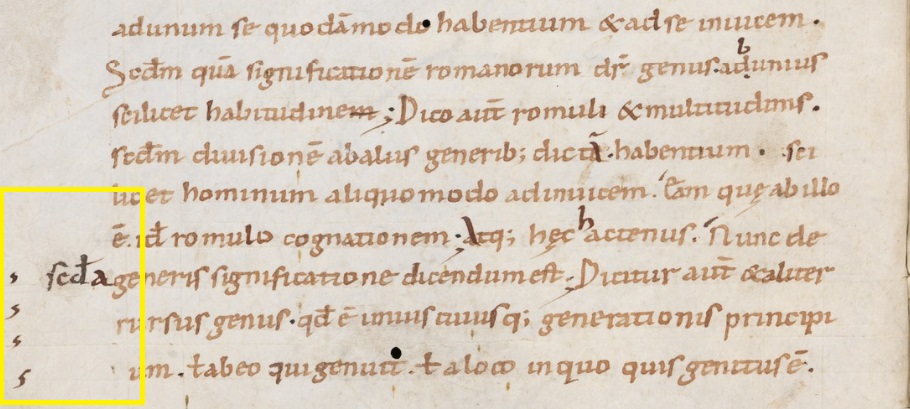 adunum se quodāmodo habentium &ad se inuicem.
Scd̄m quā significationē romanorum dr̄ genus. ab unius
scilicet habitudinem; Dico aūt romuli & multitudinis.
scd̄m diuisionē abalus generib; dictā. habentium. sci
licet hominum aliquomodo adinuicem. Eam quę abillo
ē. id̄ romulo cognationem. Atq; hęc hactenus. Nunc de
scd̄a generis significatione dicendum est. Dicitur aūt &aliter
rursus genus. qd̄ ē unius cuiusq; generationis principi
um. ł abeo qui genuit. ł a loco in quo quis genitus ē.